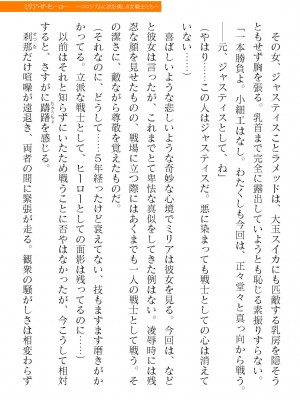 その女、ジャスティスことラメッドは、大玉スイカにも匹敵する乳房を隠そう
ともせず胸を張る。乳首まで完全に露出していようとも恥じる素振りすらない。
「一本勝負よ。小細工はなし。わたくしも今回は、正々堂々と真っ向から戦う。
元、ジャスティスとして、ね」
（やはり……この人はジャスティスだ。悪に染まっても戦士としての心は消えて
いない……）
喜ばしいような悲しいような奇妙な心境でミリアは彼女を見る。今回は、など
と彼女は言ったが、これまでとて卑怯な真似をしてきた例はない。凌辱時には残
忍な顔を見せたものの、戦場に立つ際にはあくまでも一人の戦士として戦う。そ
の潔さに、敵ながら尊敬を覚えたものだ。
（それなのに、どうして……５年経ったけど衰えてない、技もますます磨きがか
かってる。立派な戦士として、ヒーローとしての面影は残ってるのに……）
以前はそれと知らずにいたため戦うことに否やはなかったが、今こうして相対
すると、さすがに躊躇を感じる。
刹那だけ喧噪が遠退き、両者の間に緊張が走る。観衆の騒がしさは相変わらず